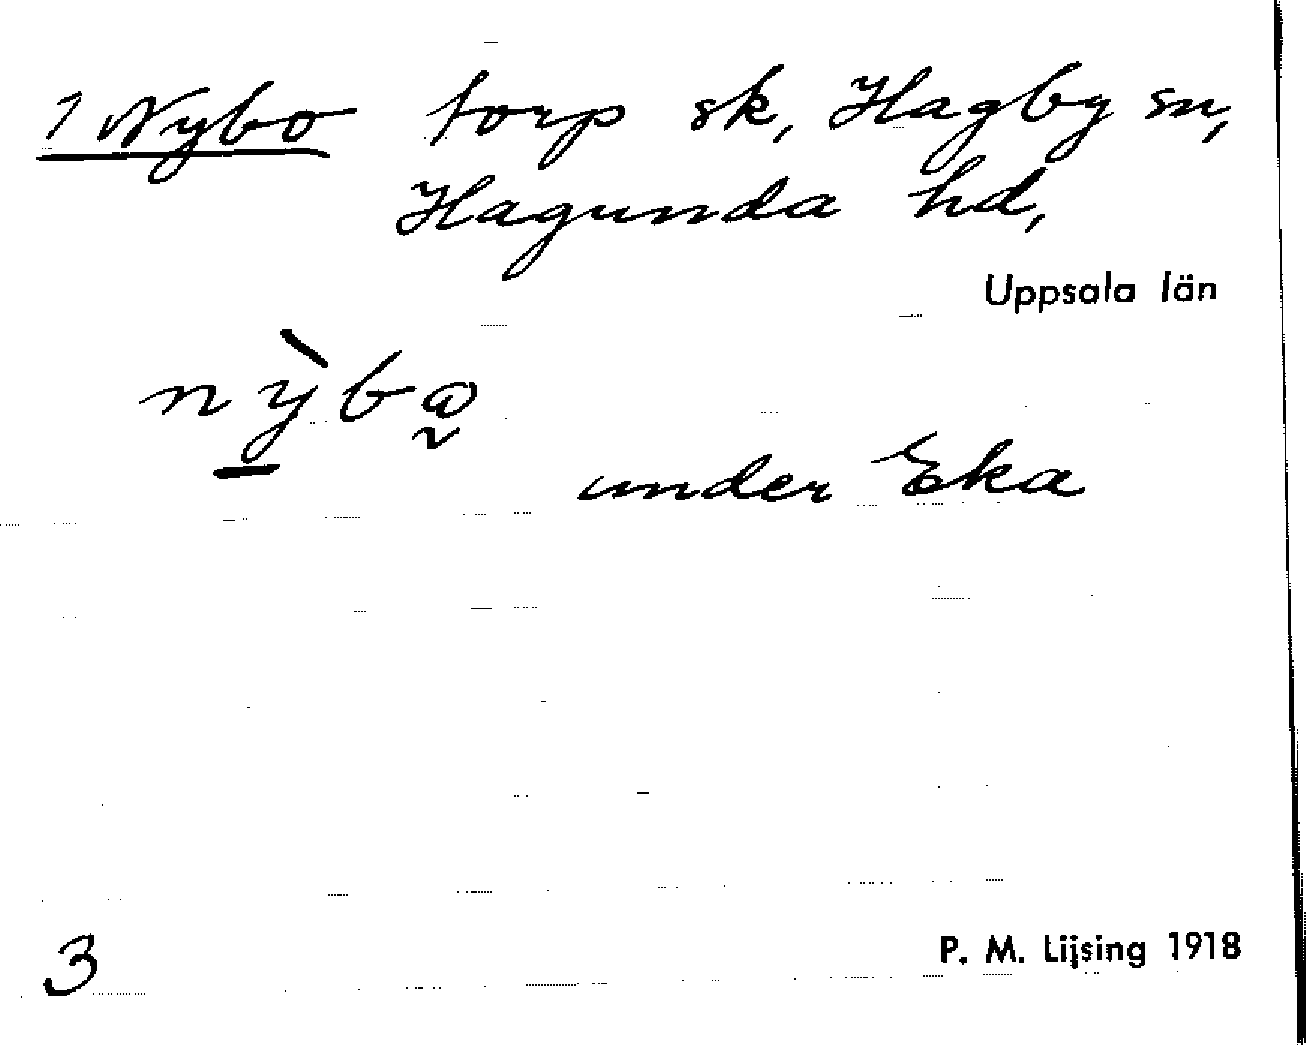 1 Nybo torp sk, Hagby sn,
Hagunda hd,
Uppsala län
under Eka
3
P. M. Lijsing 1918